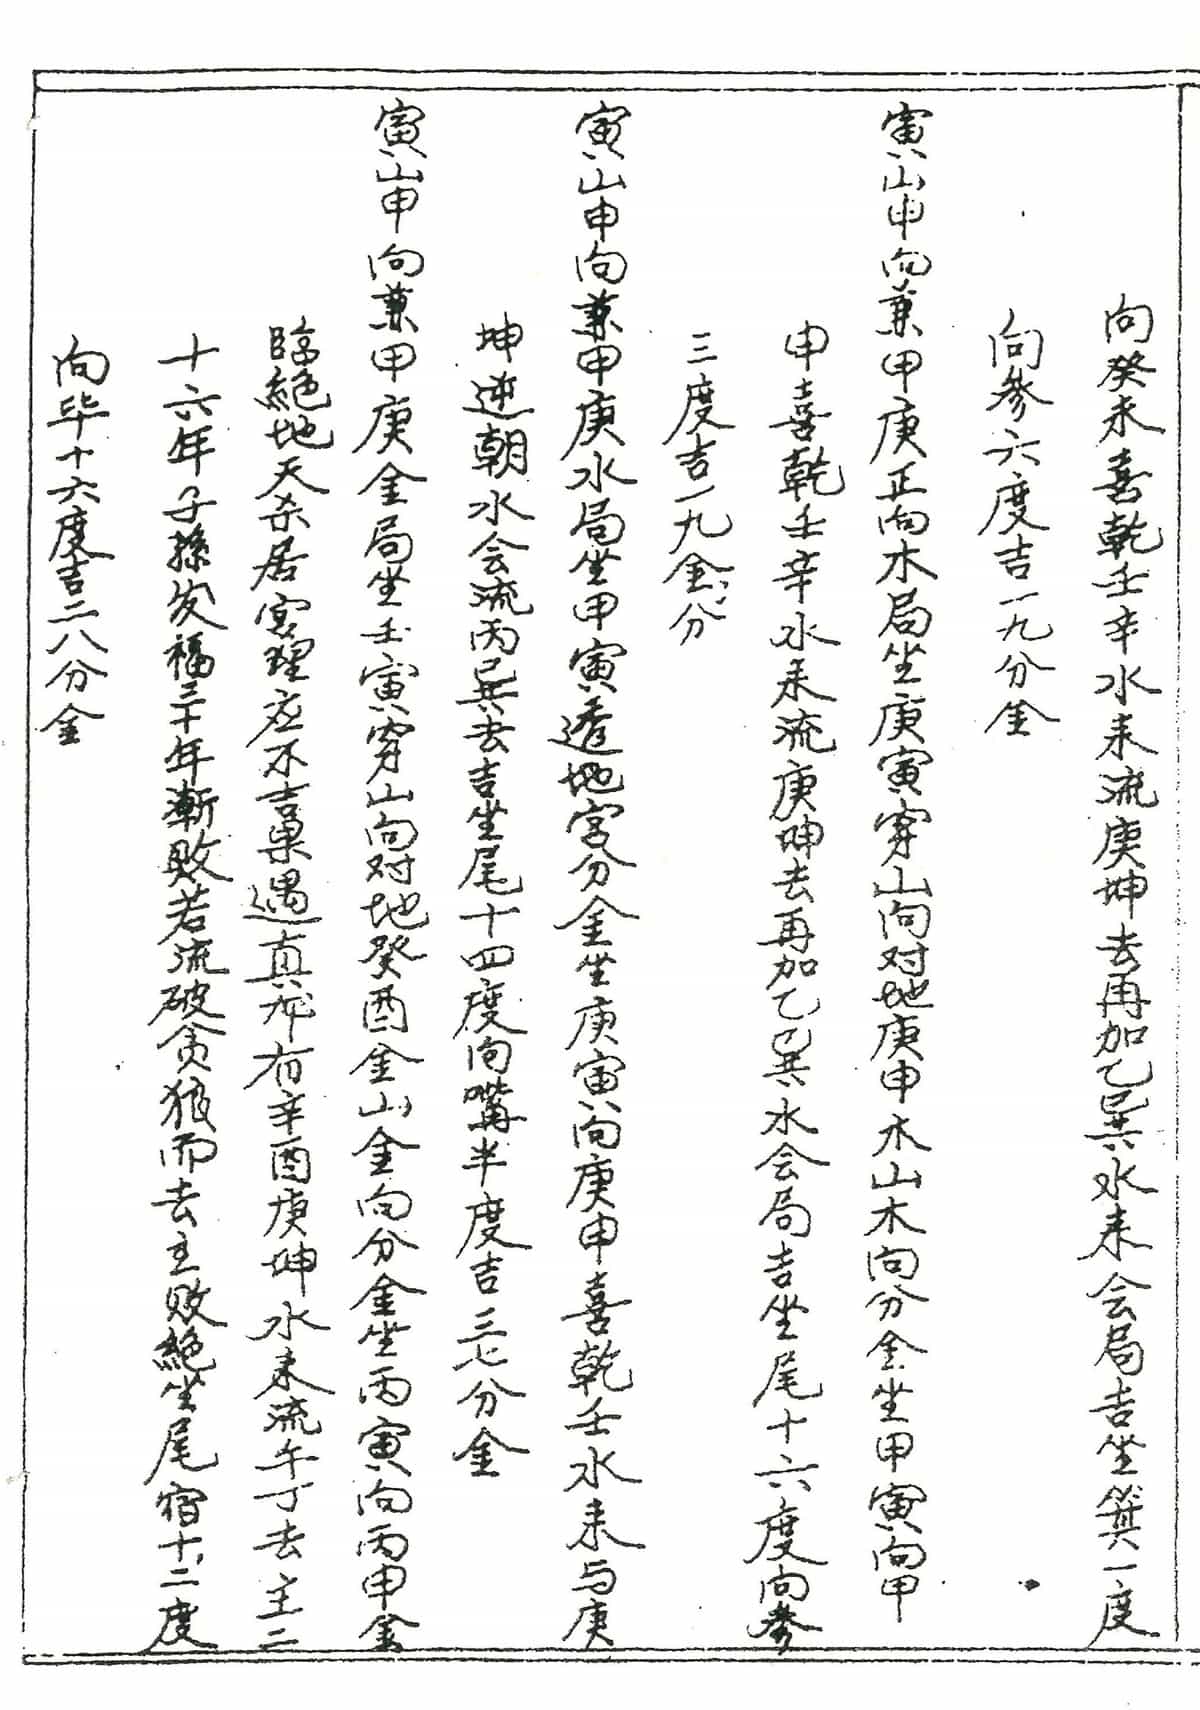 向癸未喜乾壬辛水来流庚坤去再加乙巽水来会局吉坐箕一度
向参六度吉一九分金
寅山申向兼甲庚正向木局坐庚寅穿山向对地庚申木山木向分金坐甲寅向甲
申喜乾壬辛水来流庚坤去再加乙巽水会局吉坐尾十六度向参
三度吉一九金分
寅山申向兼甲庚水局坐甲寅透地宫分金坐庚寅向庚申喜乾壬水来与庚
坤逆朝水会流丙巽去吉坐尾十四度向嘴半度吉三七分金
寅山申向兼甲庚金局坐壬寅穿山向对地癸酉金山金向分金坐丙寅向丙申金
臨絕地天杀居宫理应不吉菓遇真龙有辛酉庚坤水来流午丁去主二
十六年子孫发福三十年漸敗若流破贪狼而去主败絕坐尾宿十二度
向毕十六度吉二八分金